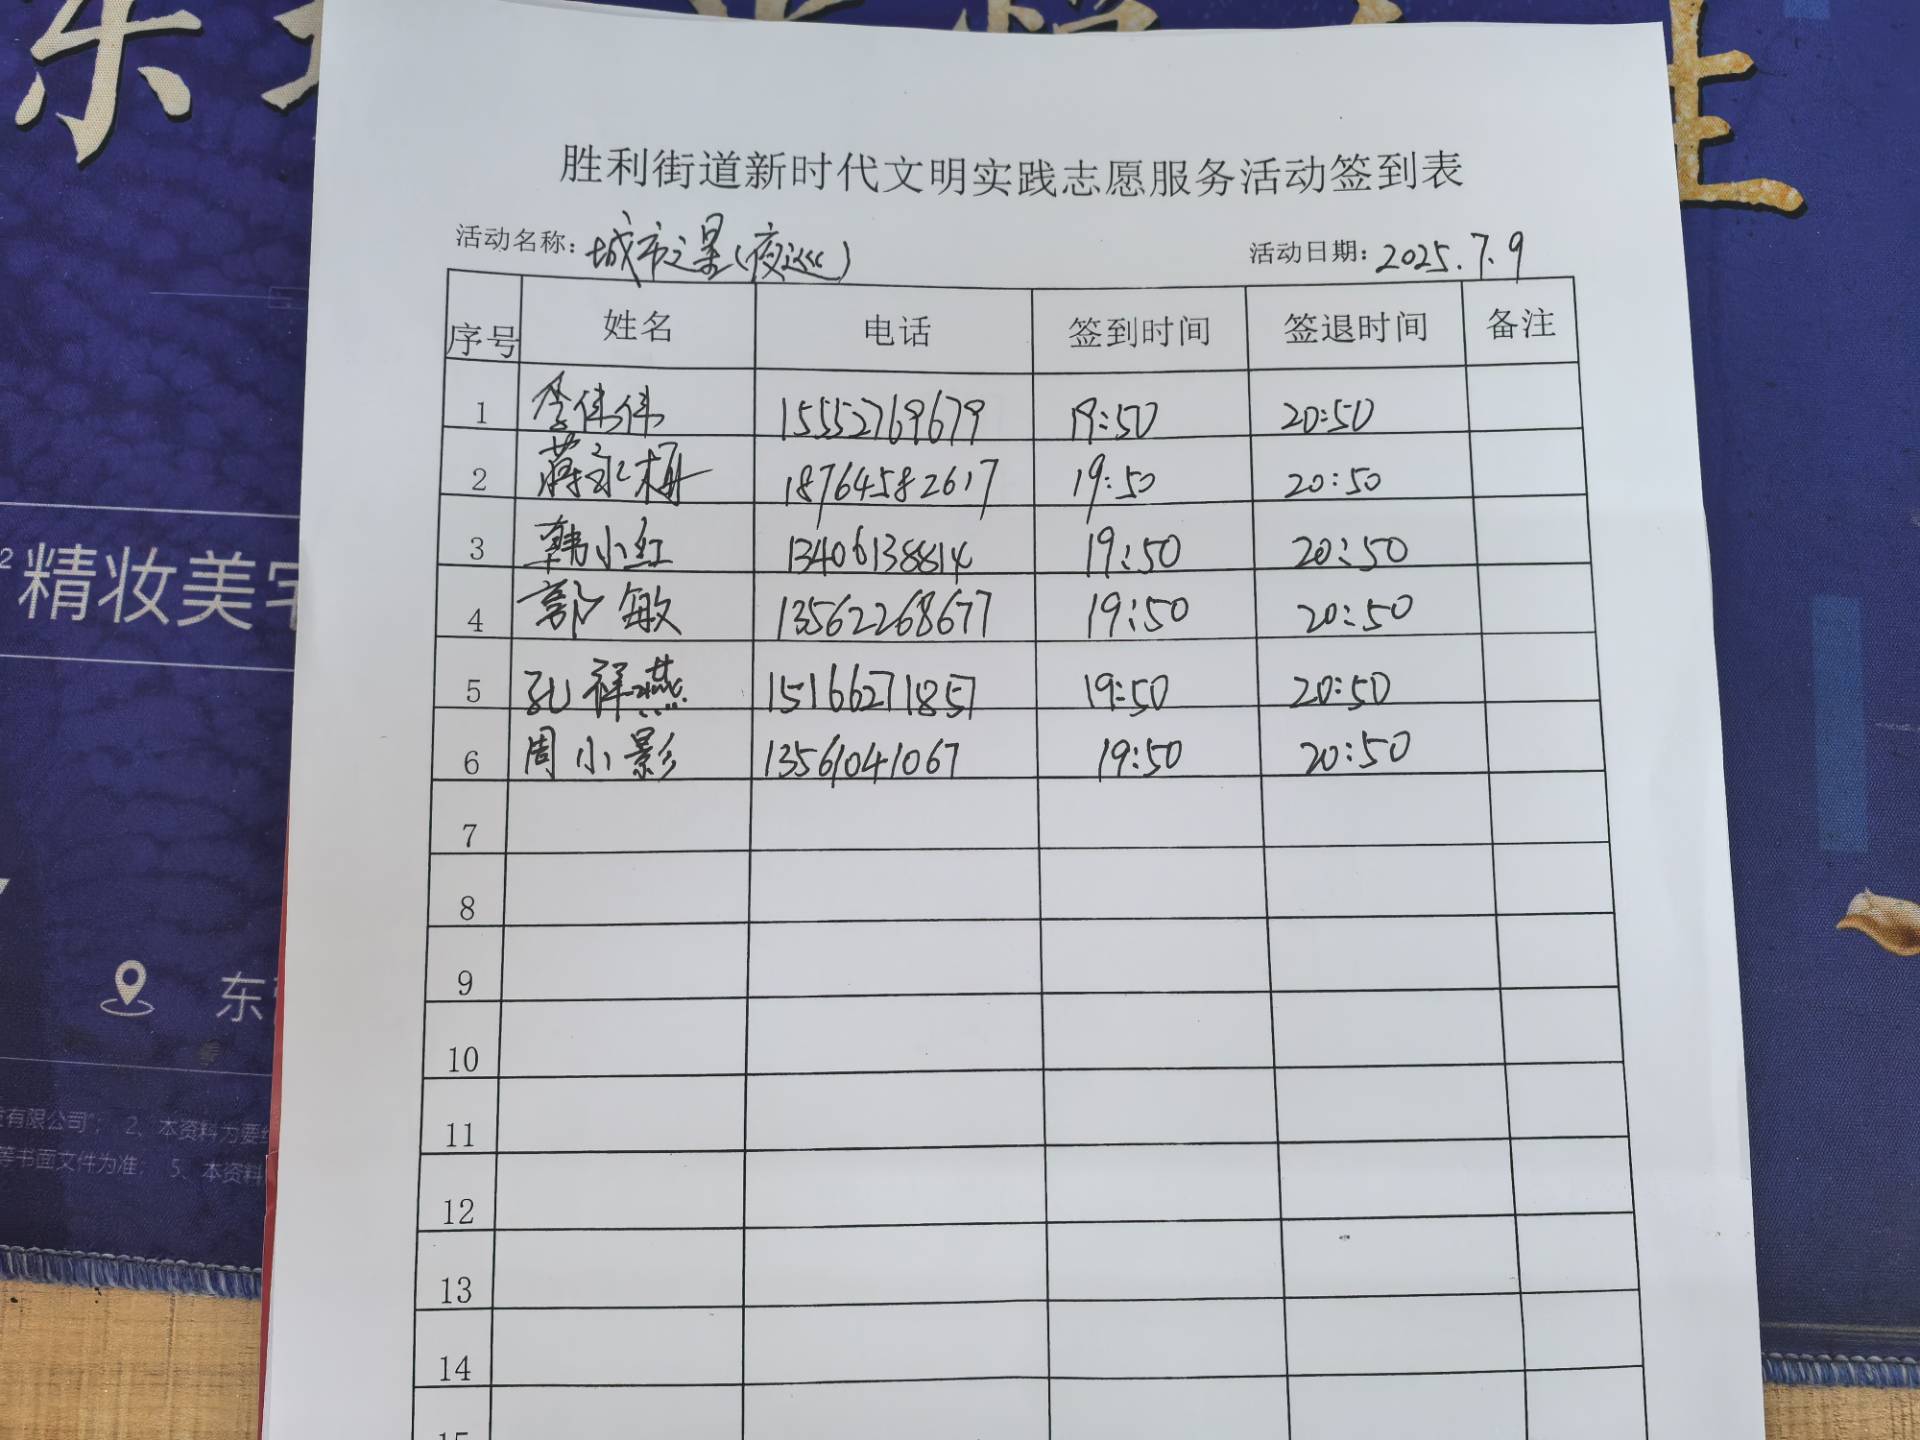 胜利街道新时代文明实践志愿服务活动签到表
活动名称：城市之星（夜巡） 活动日期：2025.7.9
序号 姓名 电话 签到时间 签退时间 备注
1 李伟伟 15552769679 19:50 20:50
2 蒋永梅 18764582617 19:50 20:50
3 韩小红 13406138814 19:50 20:50
4 郭敏 13562268677 19:50 20:50
5 孔祥燕 15166271857 19:50 20:50
6 周小影 13561041067 19:50 20:50
7
8
9
10
11
12
13
14
15
精妆美宅
东
有限公司”； 2、本资料为要约
等书面文件为准； 5、本资料